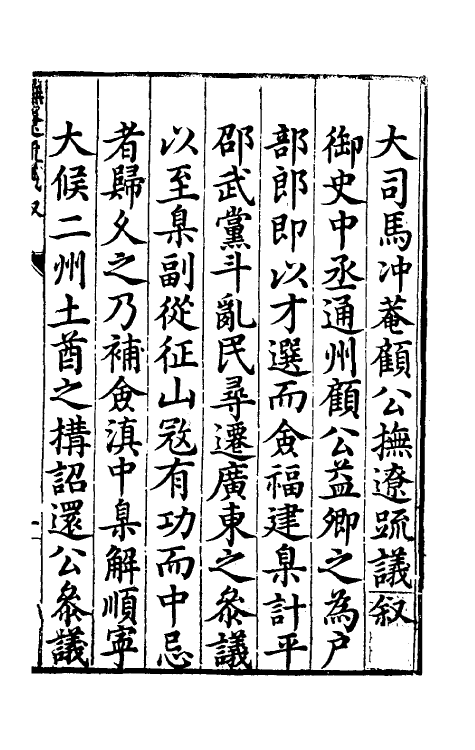 大司馬冲菴顧公撫遼疏議叙
御史中丞通州顧公益卿之為户
部郎即以才選而僉福建臬計平
邵武黨斗亂民尋遷廣東之叅議
以至臬副從征山冦有功而中忌
者歸久之乃補僉滇中臬解順寧
大候二州土酋之搆詔還公叅議